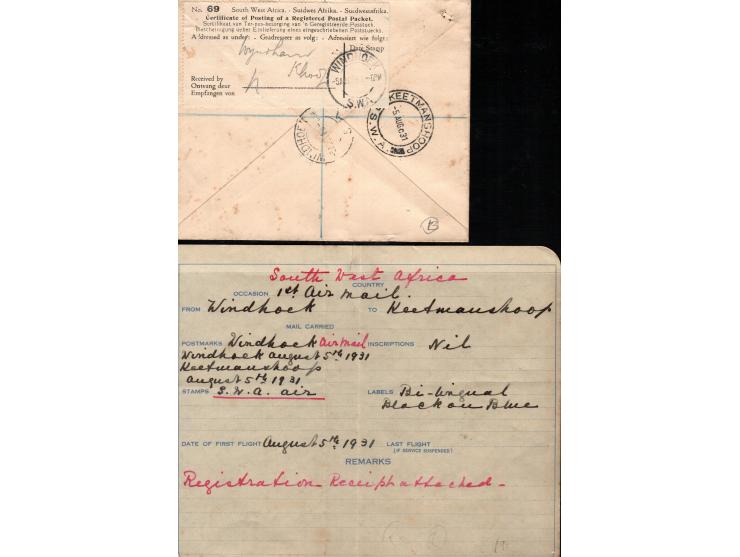 No. 69 South West Africa. - Suidwes Afrika. - Suedwestafrika.
Certificate of Posting of a Registered Postal Packet.
Sertifikaat van Ter-pos-besorging van 'n Geregistreerde Posstuck.
Bescheinigung ueber Einlieferung eines eingeschriebenen Poststuecks.
Addressed as under: - Geadresseer as volg: - Adressiert wie folgt:
Date Stamp
Received by
Ontvang deur
Empfangen von
WINDHOEK
S.W.A.
KEETMANSHOOP
5 AUG 31
S.W.A.
WINDHOEK
B
South West Africa
COUNTRY
OCCASION 1st Air Mail.
FROM Windhoek TO Keetmanshoop
MAIL CARRIED
POSTMARKS Windhoek Air Mail INSCRIPTIONS Nil
Windhoek August 5th 1931
Keetmanshoop
August 5th 1931
STAMPS S.W.A. air LABELS Bi-lingual
Black on Blue
DATE OF FIRST FLIGHT August 5th 1931 LAST FLIGHT
(IF SERVICE SUSPENDED)
REMARKS
Registration Receipt attached -